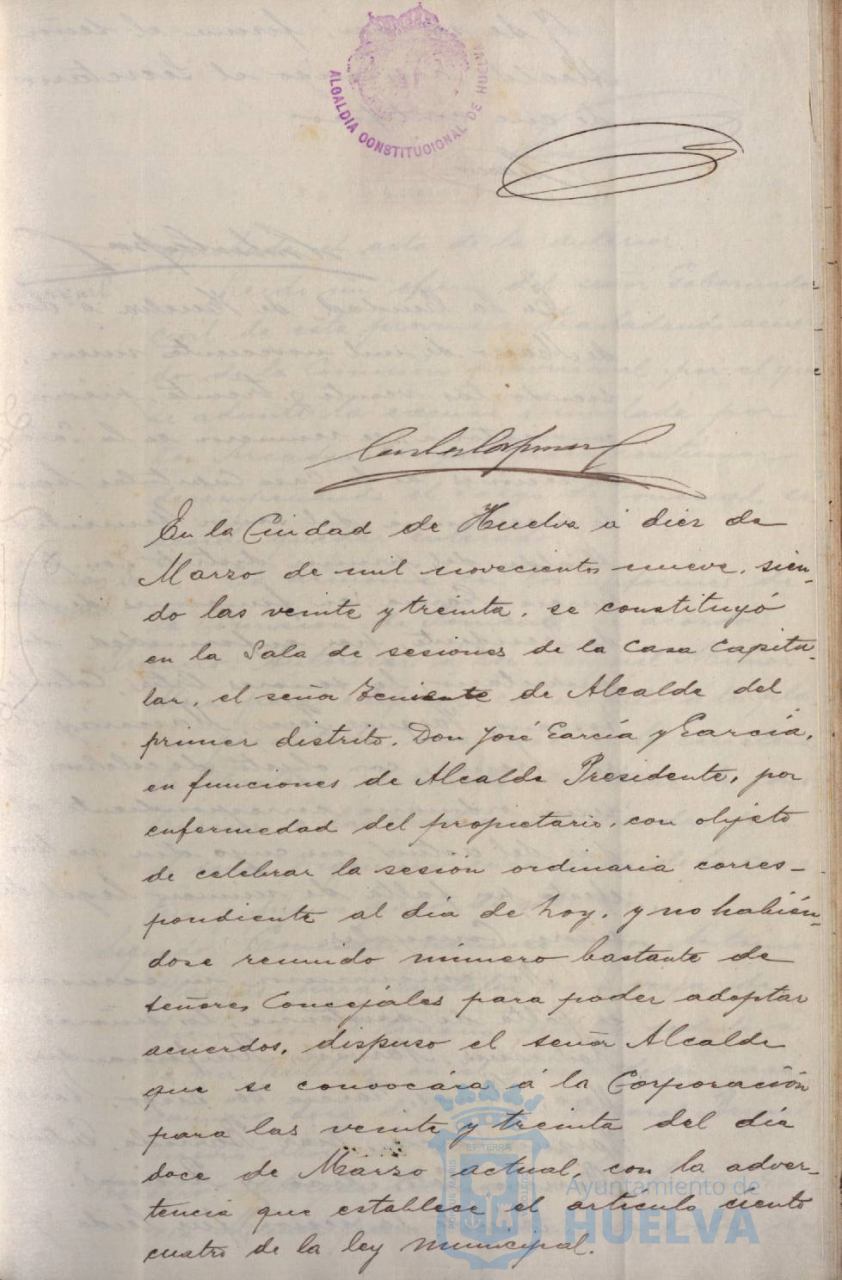 ALCALDIA CONSTITUCIONAL DE HUELVA
En la Ciudad de Huelva á diez de
Marzo de mil novecientos nueve, sien-
do las veinte y treinta, se constituyó
en la Sala de sesiones de la Casa Capitu-
lar, el señor Teniente de Alcalde del
primer distrito, Don José García y García,
en funciones de Alcalde Presidente, por
enfermedad del propietario, con objeto
de celebrar la sesión ordinaria corres-
pondiente al día de hoy, y no habién-
dose reunido número bastante de
señores Concejales para poder adoptar
acuerdos, dispuso el señor Alcalde
que se convocára á la Corporación
para las veinte y treinta del día
doce de Marzo actual, con la adver-
tencia que establece el artículo ciento
cuatro de la ley municipal.
Ayuntamiento de
HUELVA